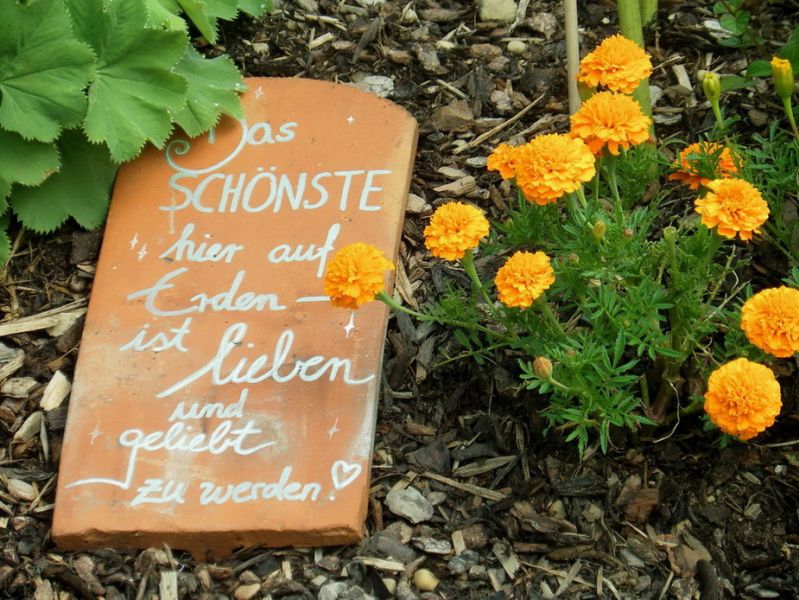 Das
SCHÖNSTE
hier auf
Erden –
ist lieben
und
geliebt
zu werden!